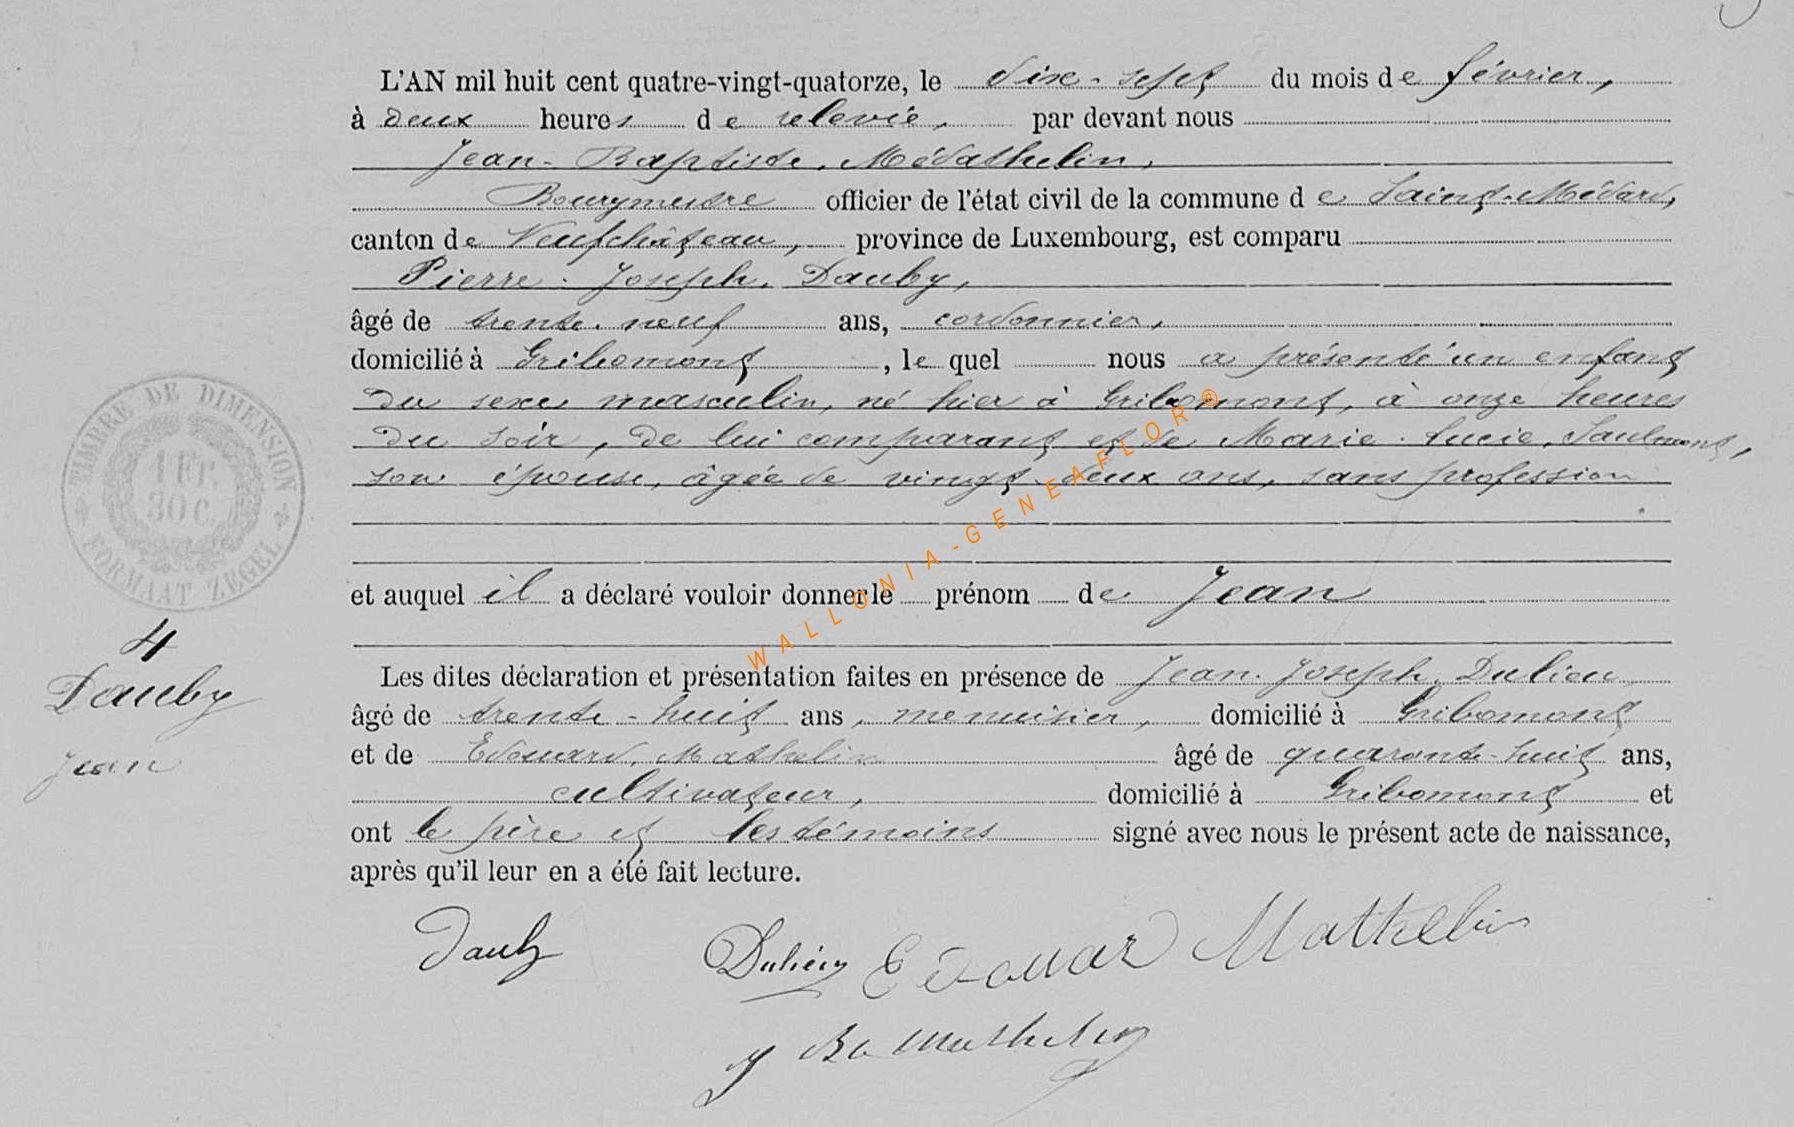 L'AN mil huit cent quatre-vingt-quatorze, le dix-sept du mois de février,
à deux heures de relevée, par devant nous
Jean-Baptiste, Mathelin,
Bourgmestre officier de l'état civil de la commune de Saint-Médard,
canton de Neufchâteau, province de Luxembourg, est comparu
Pierre-Joseph, Dauby,
âgé de trente-neuf ans, cordonnier,
domicilié à Gribomont, lequel nous a présenté un enfant
du sexe masculin, né hier à Gribomont, à onze heures
du soir, de lui comparant et de Marie-Lucie, Saulmont,
son épouse, âgée de vingt-deux ans, sans profession
et auquel il a déclaré vouloir donner le prénom de Jean
Les dites déclaration et présentation faites en présence de Jean-Joseph, Dulieu,
âgé de trente-huit ans, menuisier, domicilié à Gribomont
et de Edouard, Mathelin âgé de quarante-huit ans,
cultivateur, domicilié à Gribomont et
ont le père et les témoins signé avec nous le présent acte de naissance,
après qu'il leur en a été fait lecture.
Dauby Dulieu Edouard Mathelin
J Bte Mathelin
4
Dauby
Jean
TIMBRE DE DIMENSION
1 Fr.
30 C.
FORMAAT ZEGEL
WALLONIA-GENEAFLOR®